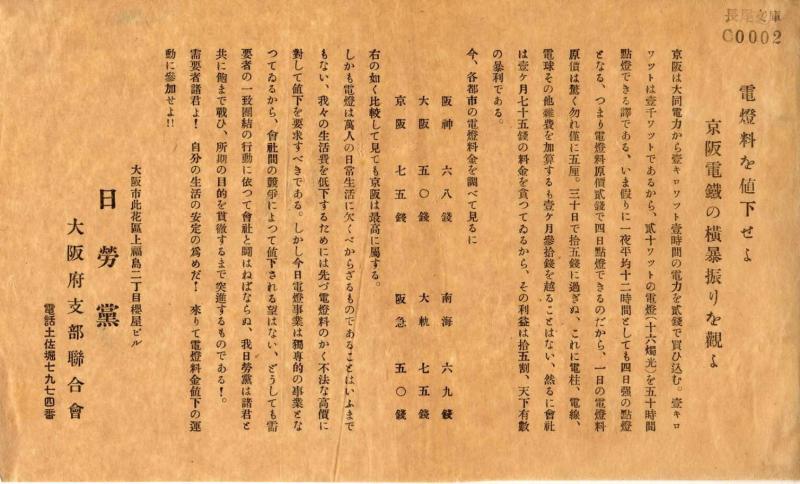 長尾文庫
C0002
電燈料を値下せよ
京阪電鐵の橫暴振りを觀よ
京阪は大同電力から壹キロワツト壹時間の電力を貳錢で買ひ込む。壹キロ
ワツトは壹千ワツトであるから、貳十ワツトの電燈(十六燭光)を五十時間
點燈できる譯である、いま假りに一夜平均十二時間としても四日强の點燈
となる、つまり電燈料原價貳錢で四日點燈できるのだから、一日の電燈料
原價は驚く勿れ僅に五厘。三十日で拾五錢に過ぎぬ、これに電柱、電線、
電球その他雜費を加算するも壹ケ月參拾錢を越ることはない、然るに會社
は壹ケ月七十五錢の料金を貪つてゐるから、その利益は拾五割、天下有數
の暴利である。
今、各都市の電燈料金を調べて見るに
阪神 六八錢 南海 六九錢
大阪 五〇錢 大軌 七五錢
京阪 七五錢 阪急 五〇錢
右の如く比較して見ても京阪は最高に屬する。
しかも電燈は萬人の日常生活に欠くべからざるものであることはいふまで
もない、我々の生活費を低下するためには先づ電燈料のかく不法な高價に
對して値下を要求すべきである。しかし今日電燈事業は獨專的の事業とな
つてゐるから、會社間の競爭によつて値下される望はない、どうしても需
要者の一致團結の行動に依つて會社と鬪はねばならぬ、我日勞黨は諸君と
共に飽まで戰ひ、所期の目的を貫徹するまで突進するものである!。
需要者諸君よ! 自分の生活の安定の爲めだ! 來りて電燈料金値下の運
動に參加せよ!!
大阪市此花區上福島二丁目櫻屋ビル
日勞黨
大阪府支部聯合會
電話土佐堀七九七四番